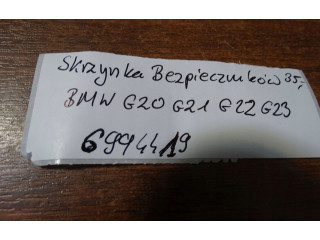 Skrzynka Bezpieczników 35,-
BMW G20 G21 G22 G23
6994419